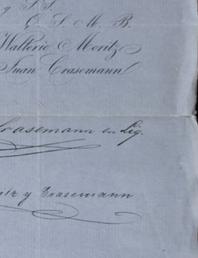 y S. S.
Q. S. M. B.
Walterio Moritz
Juan Crasemann
Crasemann en Liq.
tz y Crasemann